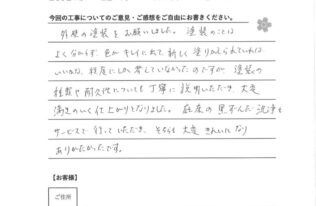 今回の工事についてのご意見・ご感想をご自由にお書きください。
外壁の塗装をお願いしました。塗装のことは
よく分からず、色がキレイに出て新しく塗りかえられていれば
いいかな、程度にしか考えていなかったのですが、塗装の
種類や耐久性についても丁寧に説明いただき、大変
満足のいく仕上がりとなりました。庭の黒ずんだ洗浄も
サービスで行っていただき、そちらも大変きれいになり
ありがたかったです。
【お客様】
ご住所